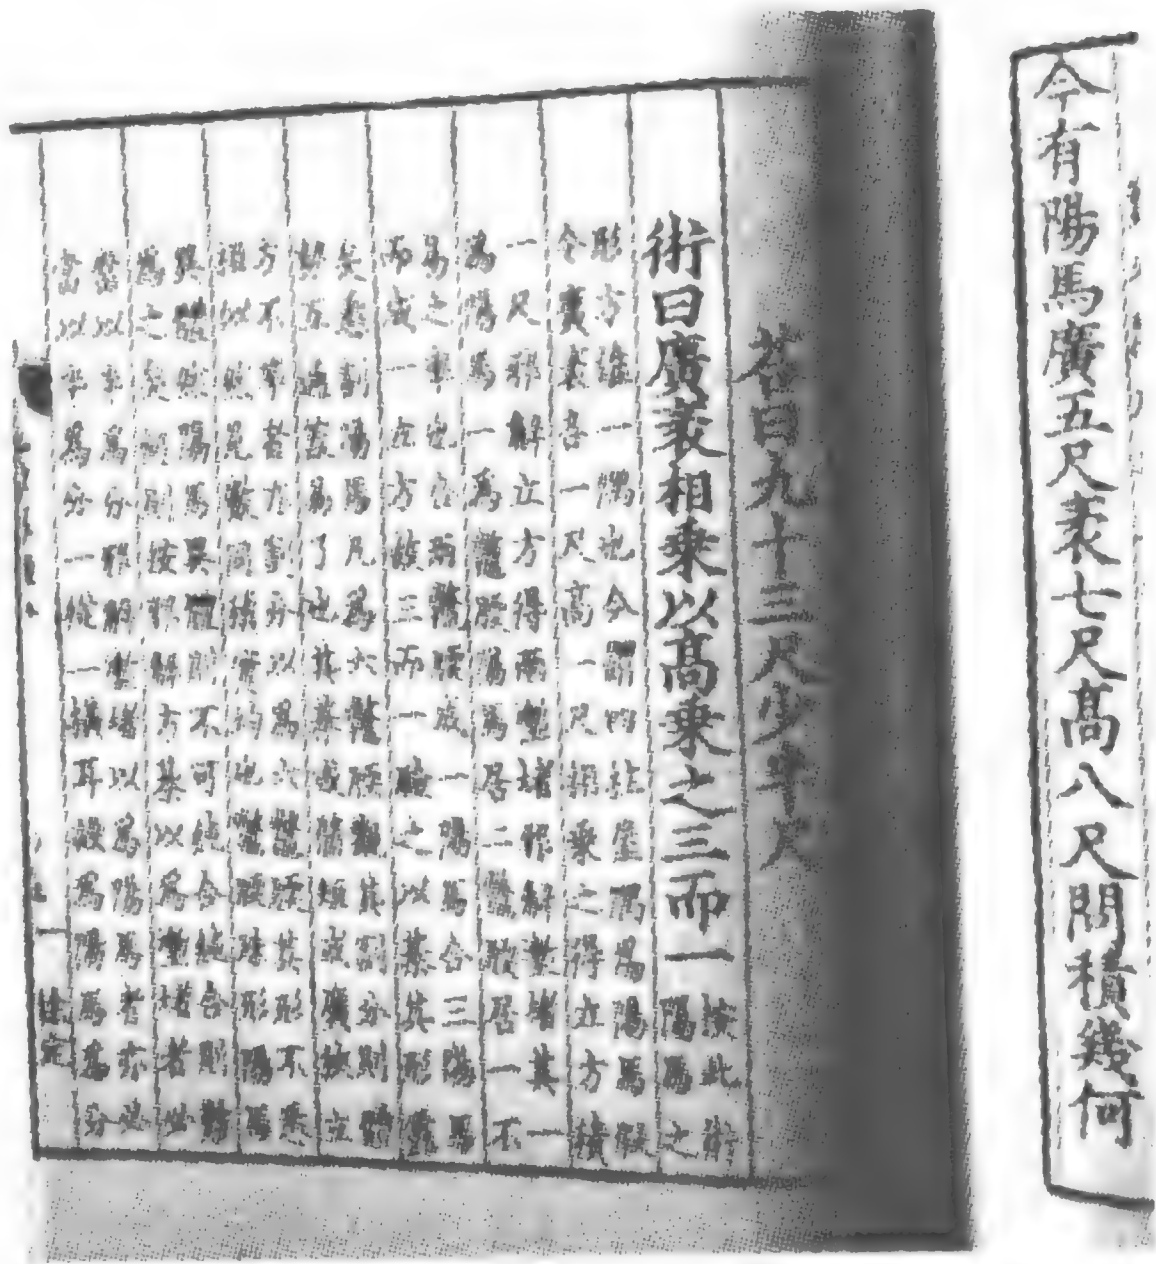 今有陽馬廣五尺袤七尺髙八尺問積幾何
荅曰九十三尺少半尺
術曰廣袤相乗以髙乗之三而一
按此術
陽馬之
形方錐一隅也今謂四柱屋隅爲陽馬假
令廣袤各一尺髙一尺相乗之得立方積
一尺邪解立方得兩壍堵邪解壍堵其一
爲陽馬一爲鼈臑陽馬居二鼈臑居一不
易之率也合兩鼈臑成一陽馬合三陽馬
而成一立方故三而一驗之以棊其形露
矣悉割陽馬凡爲六鼈臑觀其割分則體
勢互通蓋易了也其棊或脩短或廣狹立
方不等者亦割分以爲六鼈臑其形不悉
相似然見數同積實均也鼈臑殊形陽馬
異體然陽馬異體則不可純合不純合則難
爲之矣何則按邪解方棊以爲壍堵者必
當以半爲分邪解壍堵以爲陽馬者亦必
當以半爲分一從一横耳設爲陽馬爲分